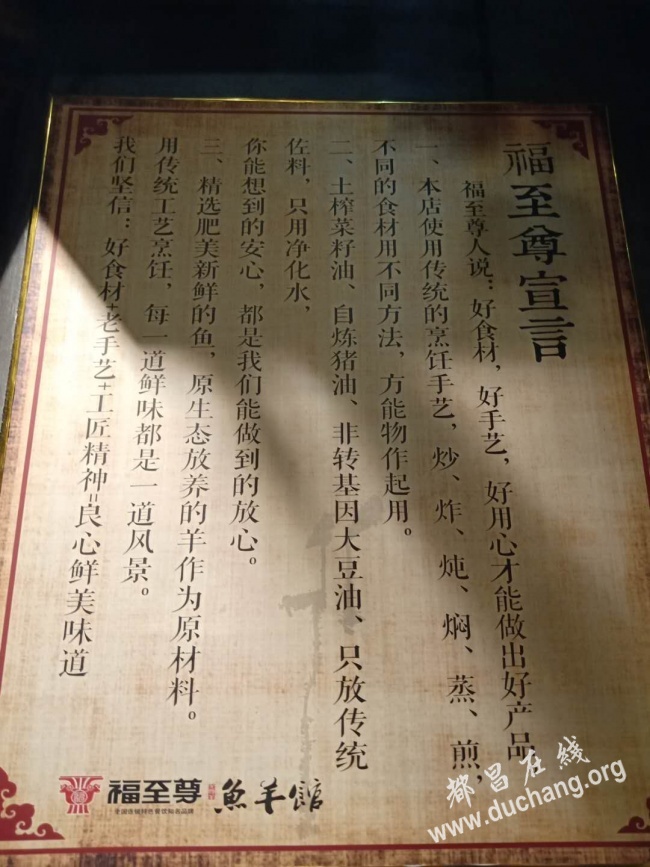 福至尊宣言
福至尊人说：好食材，好手艺，好用心才能做出好产品
一、本店使用传统的烹饪手艺，炒、炸、炖、焖、蒸、煎，
不同的食材用不同方法，方能物作起用。
二、土榨菜籽油、自炼猪油、非转基因大豆油、只放传统
佐料，只用净化水，
你能想到的安心，都是我们能做到的放心。
三、精选肥美新鲜的鱼，原生态放养的羊作为原材料。
用传统工艺烹饪，每一道鲜味都是一道风景。
我们坚信：好食材+老手艺+工匠精神=良心鲜美味道
福至尊
魚羊館
都昌在线
www.duchang.org